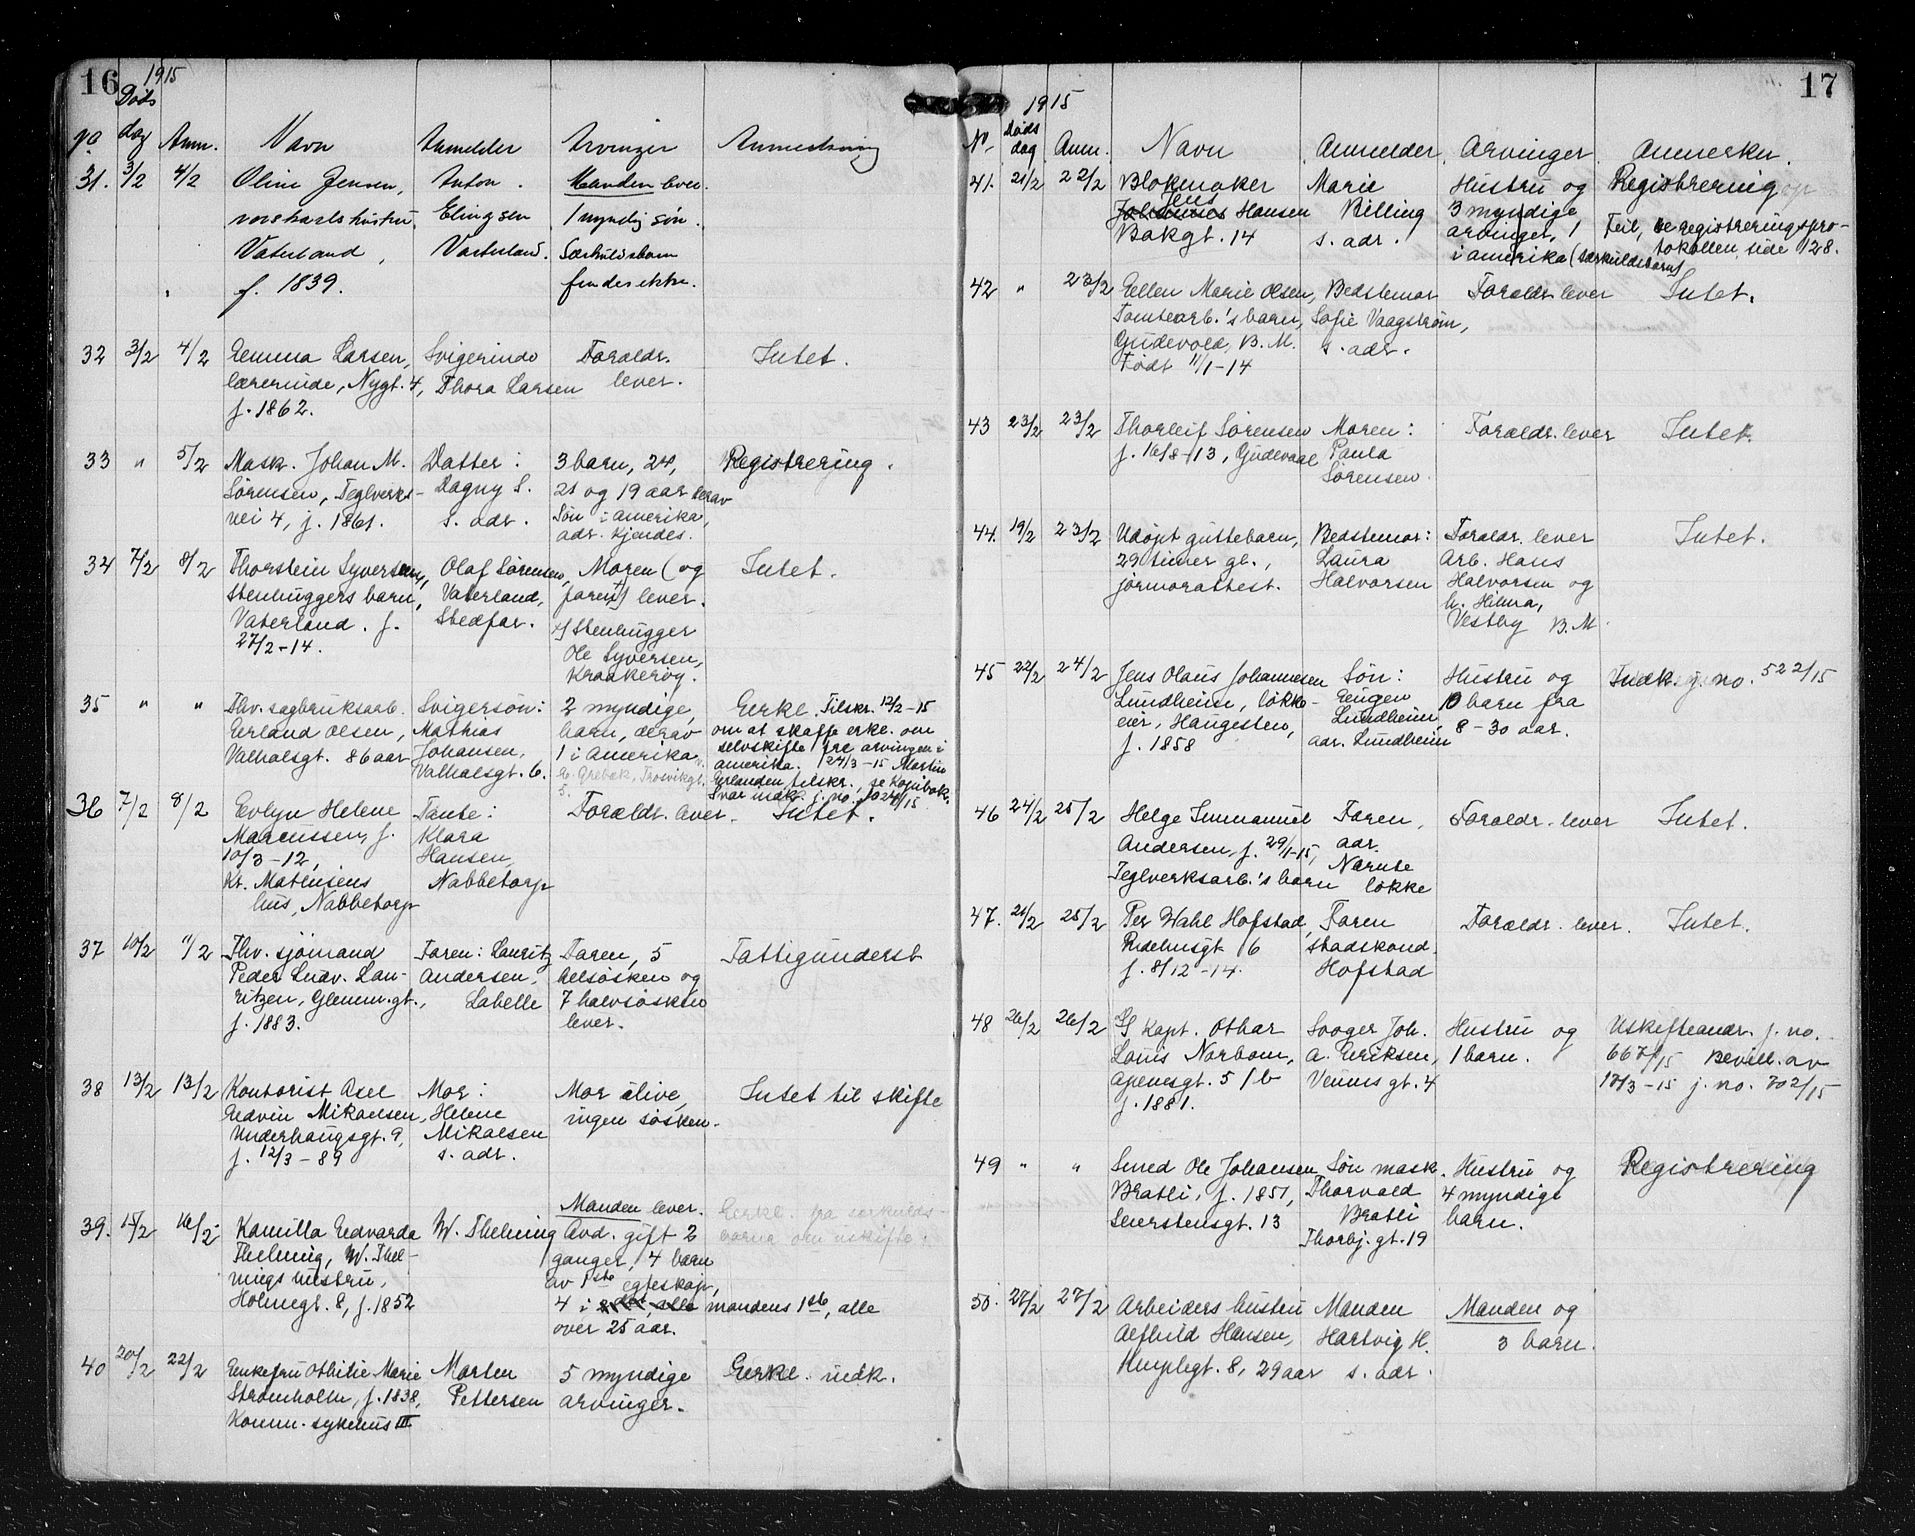 16
1915
Døds
No dag Anm. Navn Anmelder Arvinger Anmerkning
31. 3/2 4/2 Oline Jensen, Anton Manden lever.
Elingsen 1 myndig søn.
Vaterland, Vaterland. Særkuldsbarn
f. 1839. findes ikke.
32 3/2 4/2 Emma Larsen, Svigerinde Forældr. Intet.
lærerinde, Nygt. 4, Thora Larsen lever.
f. 1862.
33 " 5/2 Mask. Johan M. Datter: 3 barn, 24, Registrering.
Sørensen, Teglverks- Dagny S. 21 og 19 aar derav
vei 4, f. 1861. s. adr. Søn i Amerika,
adr. kjendes.
34 7/2 8/2 Thorstein Syversen, Olaf Sørensen, Moren (og Intet.
Stenhuggers barn, Vaterland, faren) lever.
Vaterland. f. Stedfar. Stenhugger
27/2-14. Ole Syversen,
Kraakerøy.
35 " " Fhv. sagbruksarb. Svigersøn: 2 myndige Eerkl. Tilskr. 12/2-15
Erland Olsen, Mathias barn, derav om at skaffe erkl. om
Valhalsgt. 86 aar Johansen, 1 i Amerika selvskifte fra arvingen i
Valhalsgt. 6. Amerika. 24/3-15 Martin
Erlandsen tilskr., se Kopibok.
Svar indk. j. no. 1024/15
36 7/2 8/2 Evlyn Helene Tante: Forældr. lever. Intet.
Marcussen, f. Klara
10/3-12, Hansen,
Kr. Mathisens Nabbetorp
hus, Nabbetorp
37 10/2 11/2 Fhv. sjømand Faren: Lauritz Faren, 5 Fattigunderst
Peder Ludv. Lau- Andersen, helsøsken og
ritzen, Glemm.gt., Labelle 7 halvsøsken
f. 1883. lever.
38 13/2 13/2 Kontorist Axel Mor: Mor ilive, Intet til skifte
Edvin Mikaelsen, Helene ingen søsken.
Underhaugsgt. 9, Mikaelsen
f. 12/3-89 s. adr.
Manden lever. Eerkl. fra særkulds-
39. 15/2 16/2 Kamilla Edvarda W. Thelming Avd. gift 2 barna om uskifte.
Thelming, W. Thel- ganger, 4 barn
mings hustru, av 1ste egteskap,
Holmegt. 8, f. 1852 4 i mandens 1ste, alle
over 25 aar.
40 20/2 22/2 Enkefru Othilie Marie Morten 5 myndige Eerkl. indk.
Strømholm, f. 1838, Pettersen arvinger.
Komm. sykehus III
17
1915
Døds
No. dag Anm. Navn Anmelder. Arvinger. Anmerkn.
41. 21/2 22/2 Blokmaker Marie Hustru og Registrering
Jens
Johannes Hansen Billing 3 myndige
Bakgt. 14 s. adr. arvinger, 1 Feil, se registreringspro-
i Amerika (særkuldsbarn) tokollen, side 128.
42 " 23/2 Ellen Marie Olsen, Bedstemor Forældr. lever Intet.
Tomtearb.'s barn, Sofie Vaagstrøm,
Gudevold, B. M. s. adr.
Født 11/1-14
43 23/2 23/2 Thorleif Sørensen Moren: Forældr. lever Intet.
f. 16/8-13, Gudevold Paula
Sørensen.
44. 19/2 23/2 Udøpt guttebarn, Bedstemor: Forældr. lever Intet.
29 timer gl., Laura Arb. Hans
jormorattest. Halvorsen Halvorsen og
h. Hilma,
Vestby B.M.
45 22/2 24/2 Jens Olaus Johannesen Søn: Hustru og Indk. j. no. 522/15
Lundheim, løkke- Eugen 10 barn fra
eier, Haugesten, Lundheim, 8-30 aar.
f. 1858 adr. Lundheim
46 24/2 25/2 Helge Immanuel Faren, Forældr. lever Intet.
Andersen, f. 29/1-15, adr.
Teglverksarb.'s barn Nørnte løkke
47. 24/2 25/2 Per Wahl Hofstad, Faren Forældr. lever. Intet.
Ridehusgt 6 stadskond.
f. 8/12-14. Hofstad
48 26/2 26/2 Kapt. Othar Svoger Joh. Hustru og Uskifteandr. j. no.
Louis Norbom, A. Eriksen, 1 barn. 667/15 Bevill. av
Apenesgt. 5 b Venus gt. 4 17/3-15 j. no. 702/15
f. 1881.
49 " " Smed Ole Johansen Søn mask. Hustru og Registrering
Bratli, f. 1851, Thorvald 4 myndige
Seierstensgt. 13 Bratli barn.
Thorbj. gt. 19
50. 27/2 27/2 Arbeiders hustru Manden Manden og
Alfhild Hansen, Hartvig H. 3 barn.
8, 29 aar s. adr.